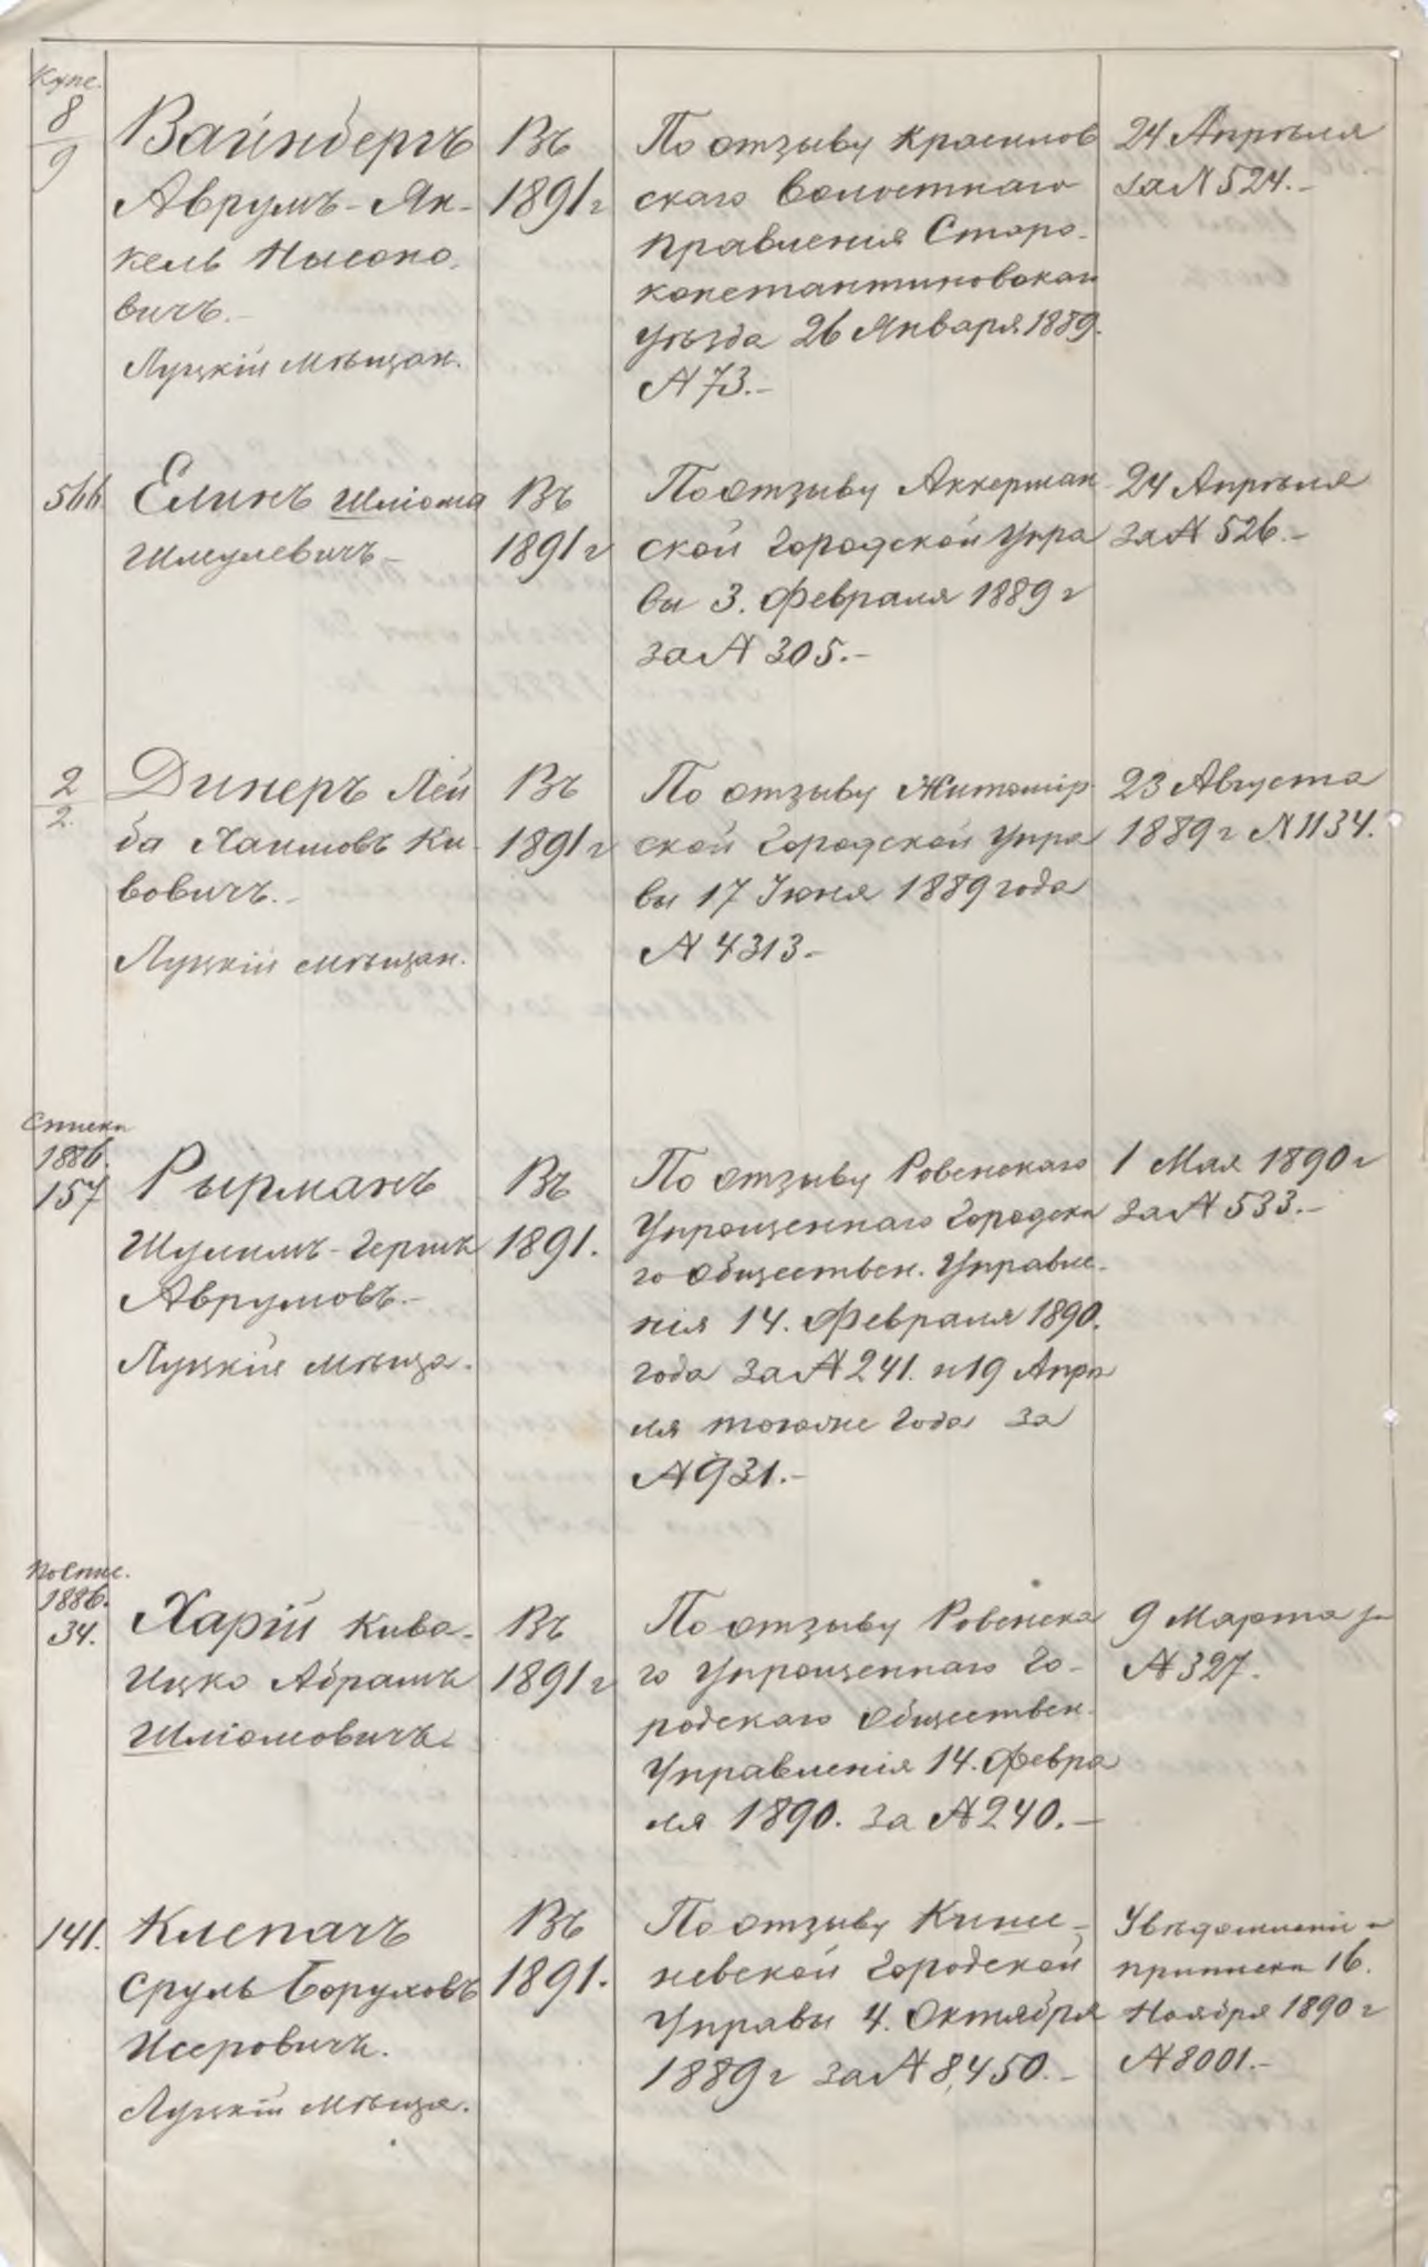 Купс.
8
9
Вайнбергъ
Аврумъ-Ян-
кель Нысоно-
вичъ.-
Луцкій мѣщан.
Въ
1891г
По отзыву Красилов
скаго Волостнаго
Правленія Старо-
константиновскаго
уѣзда 26 Января 1889.
№ 73.-
24 Апрѣля
за № 524.-
566.
Елинъ Шліома
Шмулевичъ-
Въ
1891г
По отзыву Аккерман-
ской Городской Упра
вы 3. Февраля 1889г
за № 305.-
24 Апрѣля
за № 526.-
2
2.
Динеръ Лей
ба Хаимовъ Ки-
вовичъ.-
Луцкій мѣщан.
Въ
1891г
По отзыву Житомір-
ской Городской Упра
вы 17 Іюня 1889 года
№ 4313-
23 Августа
1889г № 1134.
Списки
1886.
157
Рырманъ
Шулимъ-Гершъ
Аврумовъ.-
Луцкій мѣща.
Въ
1891.
По отзыву Ровенскаго
Упрощеннаго Городска
го Обществен. Управле-
нія 14. Февраля 1890.
года за № 241. и 19 Апрѣ
ля тогоже года за
№ 931.-
1 Мая 1890г
за № 533.-
По Спис.
1886.
34.
Харій Кива-
Ицко Абрамъ
Шліомовичъ
Въ
1891г
По отзыву Ровенска
го Упрощеннаго Го-
родскаго Обществен.
Управленія 14. Февра
ля 1890. за № 240.-
9 Марта за
№ 327.
141.
Клепачъ
Сруль Боруховъ
Исеровичъ.
Луцкій мѣща.
Въ
1891.
По отзыву Кише-
невской Городской
Управы 4. Октября
1889г за № 8,450.-
Увѣдомленіе
приписки 16.
Ноября 1890г
№ 8001.-